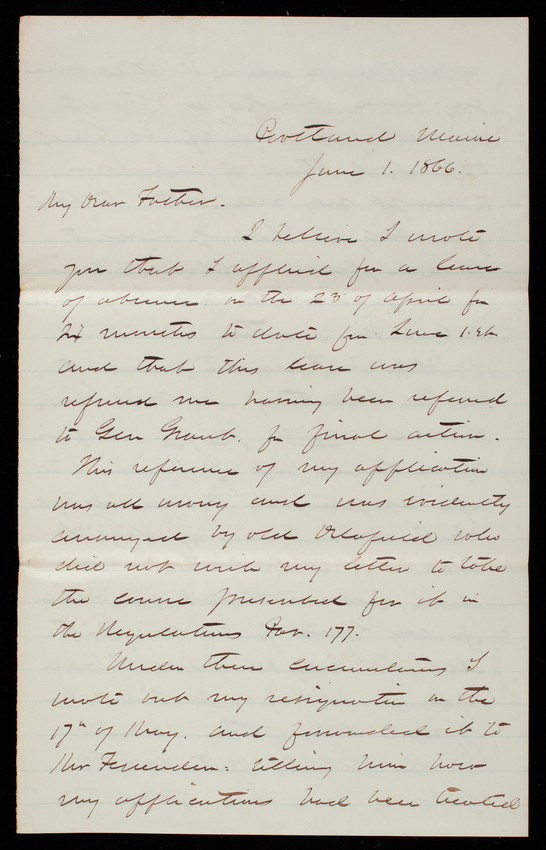 Portland Maine
June 1. 1866.
My Dear Father.
I believe I wrote
you that I applied for a leave
of absence on the 23 of April for
six months to date from June 1st
and that this leave was
refused me having been referred
to Gen Grant. for final action.
This reference of my application
was all wrong and was evidently
arranged by old Delafield who
did not wish my letter to take
the course prescribed for it in
the Regulations Par. 177.
Under these circumstances I
wrote out my resignation on the
17th of May. and forwarded it to
Mr Fessenden: telling him how
my applications had been treated